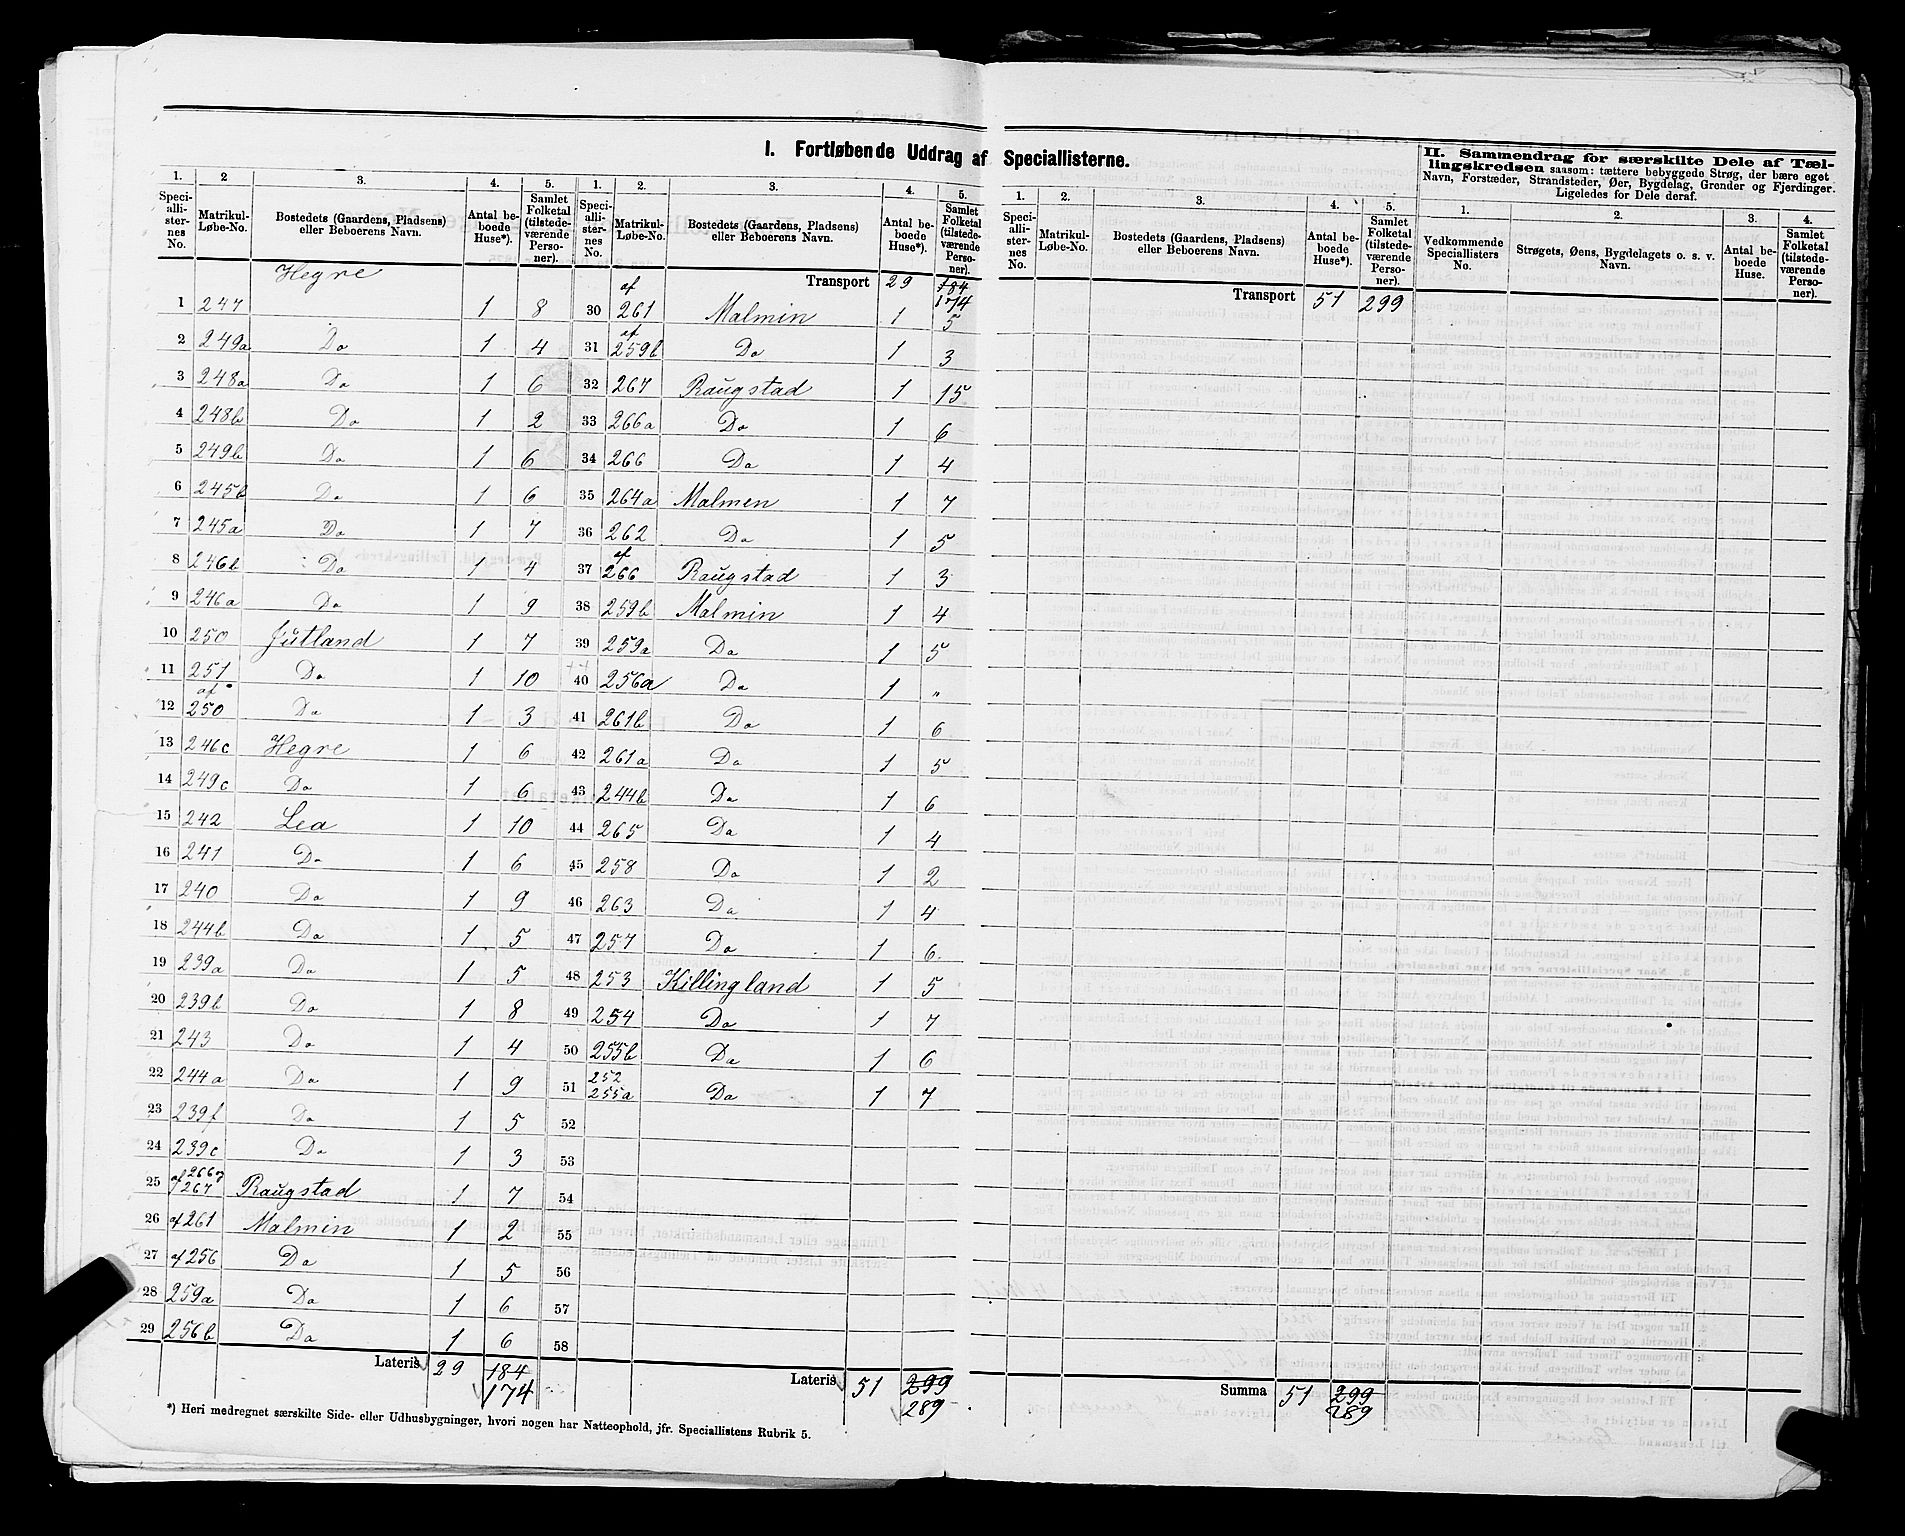 I. Fortløbende Uddrag af Speciallisterne.
1. 2 3. 4. 5.
Speciallisternes No. Matrikul-Løbe-No. Bostedets (Gaardens, Pladsens) eller Beboerens Navn. Antal beboede Huse*). Samlet Folketal (tilstedeværende Personer).
Hegre
1 247 1 8
2 249a Do 1 4
3 248a Do 1 6
4 248b Do 1 2
5 249b Do 1 6
6 245b Do 1 6
7 245a Do 1 7
8 246b Do 1 4
9 246a Do 1 9
10 250 Jutland 1 7
11 251 Do 1 10
12 af 250 Do 1 3
13 246c Hegre 1 6
14 249c Do 1 6
15 242 Lea 1 10
16 241 Do 1 6
17 240 Do 1 9
18 244b Do 1 5
19 239a Do 1 5
20 239b Do 1 8
21 243 Do 1 4
22 244a Do 1 9
23 239f Do 1 5
24 239c Do 1 3
25 af 266 og 267 Raugstad 1 7
26 af 261 Malmin 1 2
27 af 256 Do 1 5
28 259a Do 1 6
29 256b Do 1 6
Lateris 29 184
174
*) Heri medregnet særskilte Side- eller Udhusbygninger, hvori nogen har Natteophold, jfr. Speciallistens Rubrik 5.
1. 2. 3. 4. 5.
Speciallisternes No. Matrikul-Løbe-No. Bostedets (Gaardens, Pladsens) eller Beboerens Navn. Antal beboede Huse*). Samlet Folketal (tilstedeværende Personer).
Transport 29 184
174
30 af 261 Malmin 1 5
31 af 259b Do 1 3
32 267 Raugstad 1 15
33 266a Do 1 6
34 266 Do 1 4
35 264a Malmen 1 7
36 262 Do 1 5
37 af 266 Raugstad 1 3
38 259b Malmin 1 4
39 259a Do 1 5
40 256a Do 1 "
41 261b Do 1 6
42 261a Do 1 5
43 244b Do 1 6
44 265 Do 1 4
45 258 Do 1 2
46 263 Do 1 4
47 257 Do 1 6
48 253 Killingland 1 5
49 254 Do 1 7
50 255b Do 1 6
51 252 255a Do 1 7
52
53
54
55
56
57
58
Lateris 51 299
289
1. 2. 3. 4. 5.
Speciallisternes No. Matrikul-Løbe-No. Bostedets (Gaardens, Pladsens) eller Beboerens Navn. Antal beboede Huse*). Samlet Folketal (tilstedeværende Personer).
Transport 51 299
Summa 51 299
289
II. Sammendrag for særskilte Dele af Tællingskredsen saasom: tættere bebyggede Strøg, der bære eget
Navn, Forstæder, Strandsteder, Øer, Bygdelag, Grender og Fjerdinger.
Ligeledes for Dele deraf.
1. 2. 3. 4.
Vedkommende Speciallisters No. Strøgets, Øens, Bygdelagets o. s. v. Navn. Antal beboede Huse. Samlet Folketal (tilstedeværende Personer).